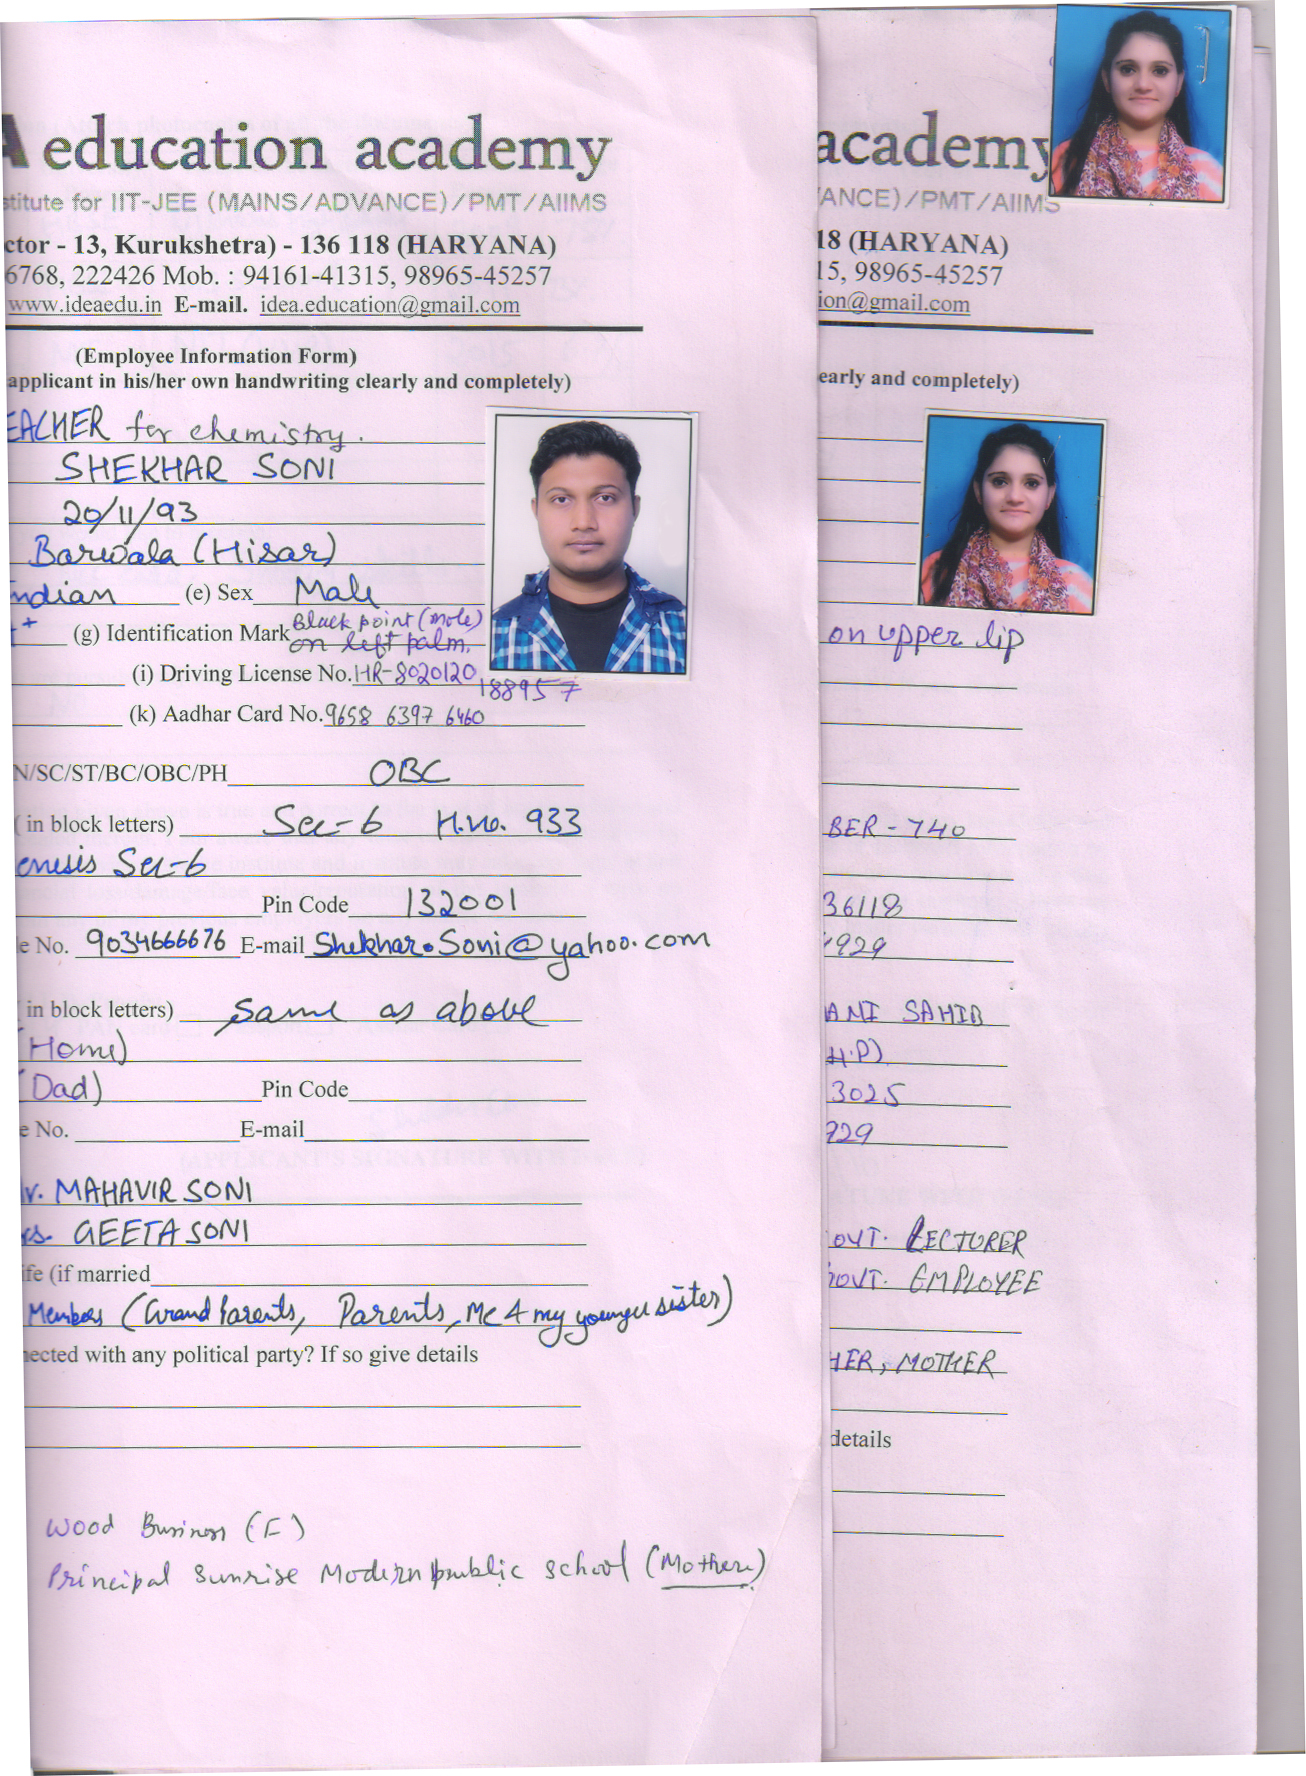 education academy
stitute for IIT-JEE (MAINS/ADVANCE)/PMT/AIIMS
ctor - 13, Kurukshetra) - 136 118 (HARYANA)
6768, 222426 Mob. : 94161-41315, 98965-45257
www.ideaedu.in E-mail. idea.education@gmail.com
(Employee Information Form)
applicant in his/her own handwriting clearly and completely)
EACHER for chemistry.
SHEKHAR SONI
20/11/93
Barwala (Hisar)
ndian (e) Sex Male
+ (g) Identification Mark Black point (mole) on left palm.
(i) Driving License No. HR-8020120188957
(k) Aadhar Card No. 9658 6397 6460
N/SC/ST/BC/OBC/PH OBC
( in block letters) Sec-6 H.no. 933
enesis Sec-6
Pin Code 132001
e No. 9034666676 E-mail Shekhar.Soni@yahoo.com
( in block letters) Same as above
(Home)
(Dad) Pin Code
e No. E-mail
r. MAHAVIR SONI
rs. GEETA SONI
ife (if married
Members (Grand Parents, Parents, Me & my younger sister)
nected with any political party? If so give details
Wood Business (F)
Principal Sunrise Modern public school (Mother)
academy
ANCE)/PMT/AIIMS
18 (HARYANA)
15, 98965-45257
ion@gmail.com
early and completely)
on upper lip
BER-740
36118
929
ANI SAHIB
H.P)
3025
929
OVT. LECTURER
OVT. EMPLOYEE
HER, MOTHER
details